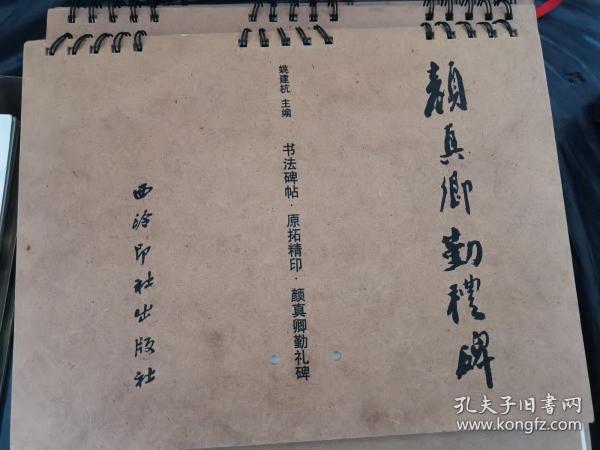 顔真卿勤禮碑
姚建杭 主编
书法碑帖·原拓精印·颜真卿勤礼碑
西泠印社出版社
孔夫子旧书网
www.kongfz.com